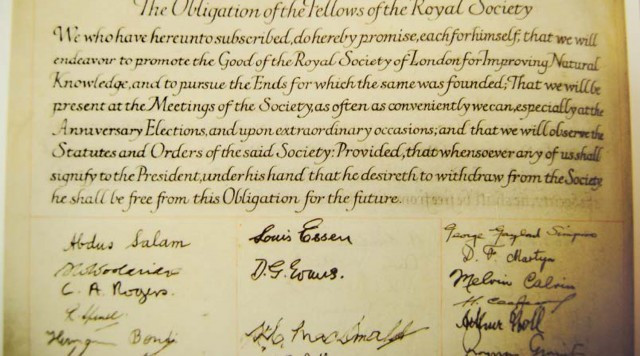 The Obligation of the Fellows of the Royal Society
We who have hereunto subscribed, do hereby promise, each for himself, that we will
endeavor to promote the Good of the Royal Society of London for Improving Natural
Knowledge, and to pursue the Ends for which the same was founded; That we will be
present at the Meetings of the Society, as often as conveniently we can, especially at the
Anniversary Elections, and upon extraordinary occasions; and that we will observe the
Statutes and Orders of the said Society: Provided, that whensoever any of us shall
signify to the President, under his hand that he desireth to withdraw from the Society
he shall be free from this Obligation for the future.
Abdus Salam
C. A. Rogers.
Hermann Bondi
Louis Essen
D. G. Evans.
George Gaylord Simpson
D. F. Martyn
Melvin Calvin